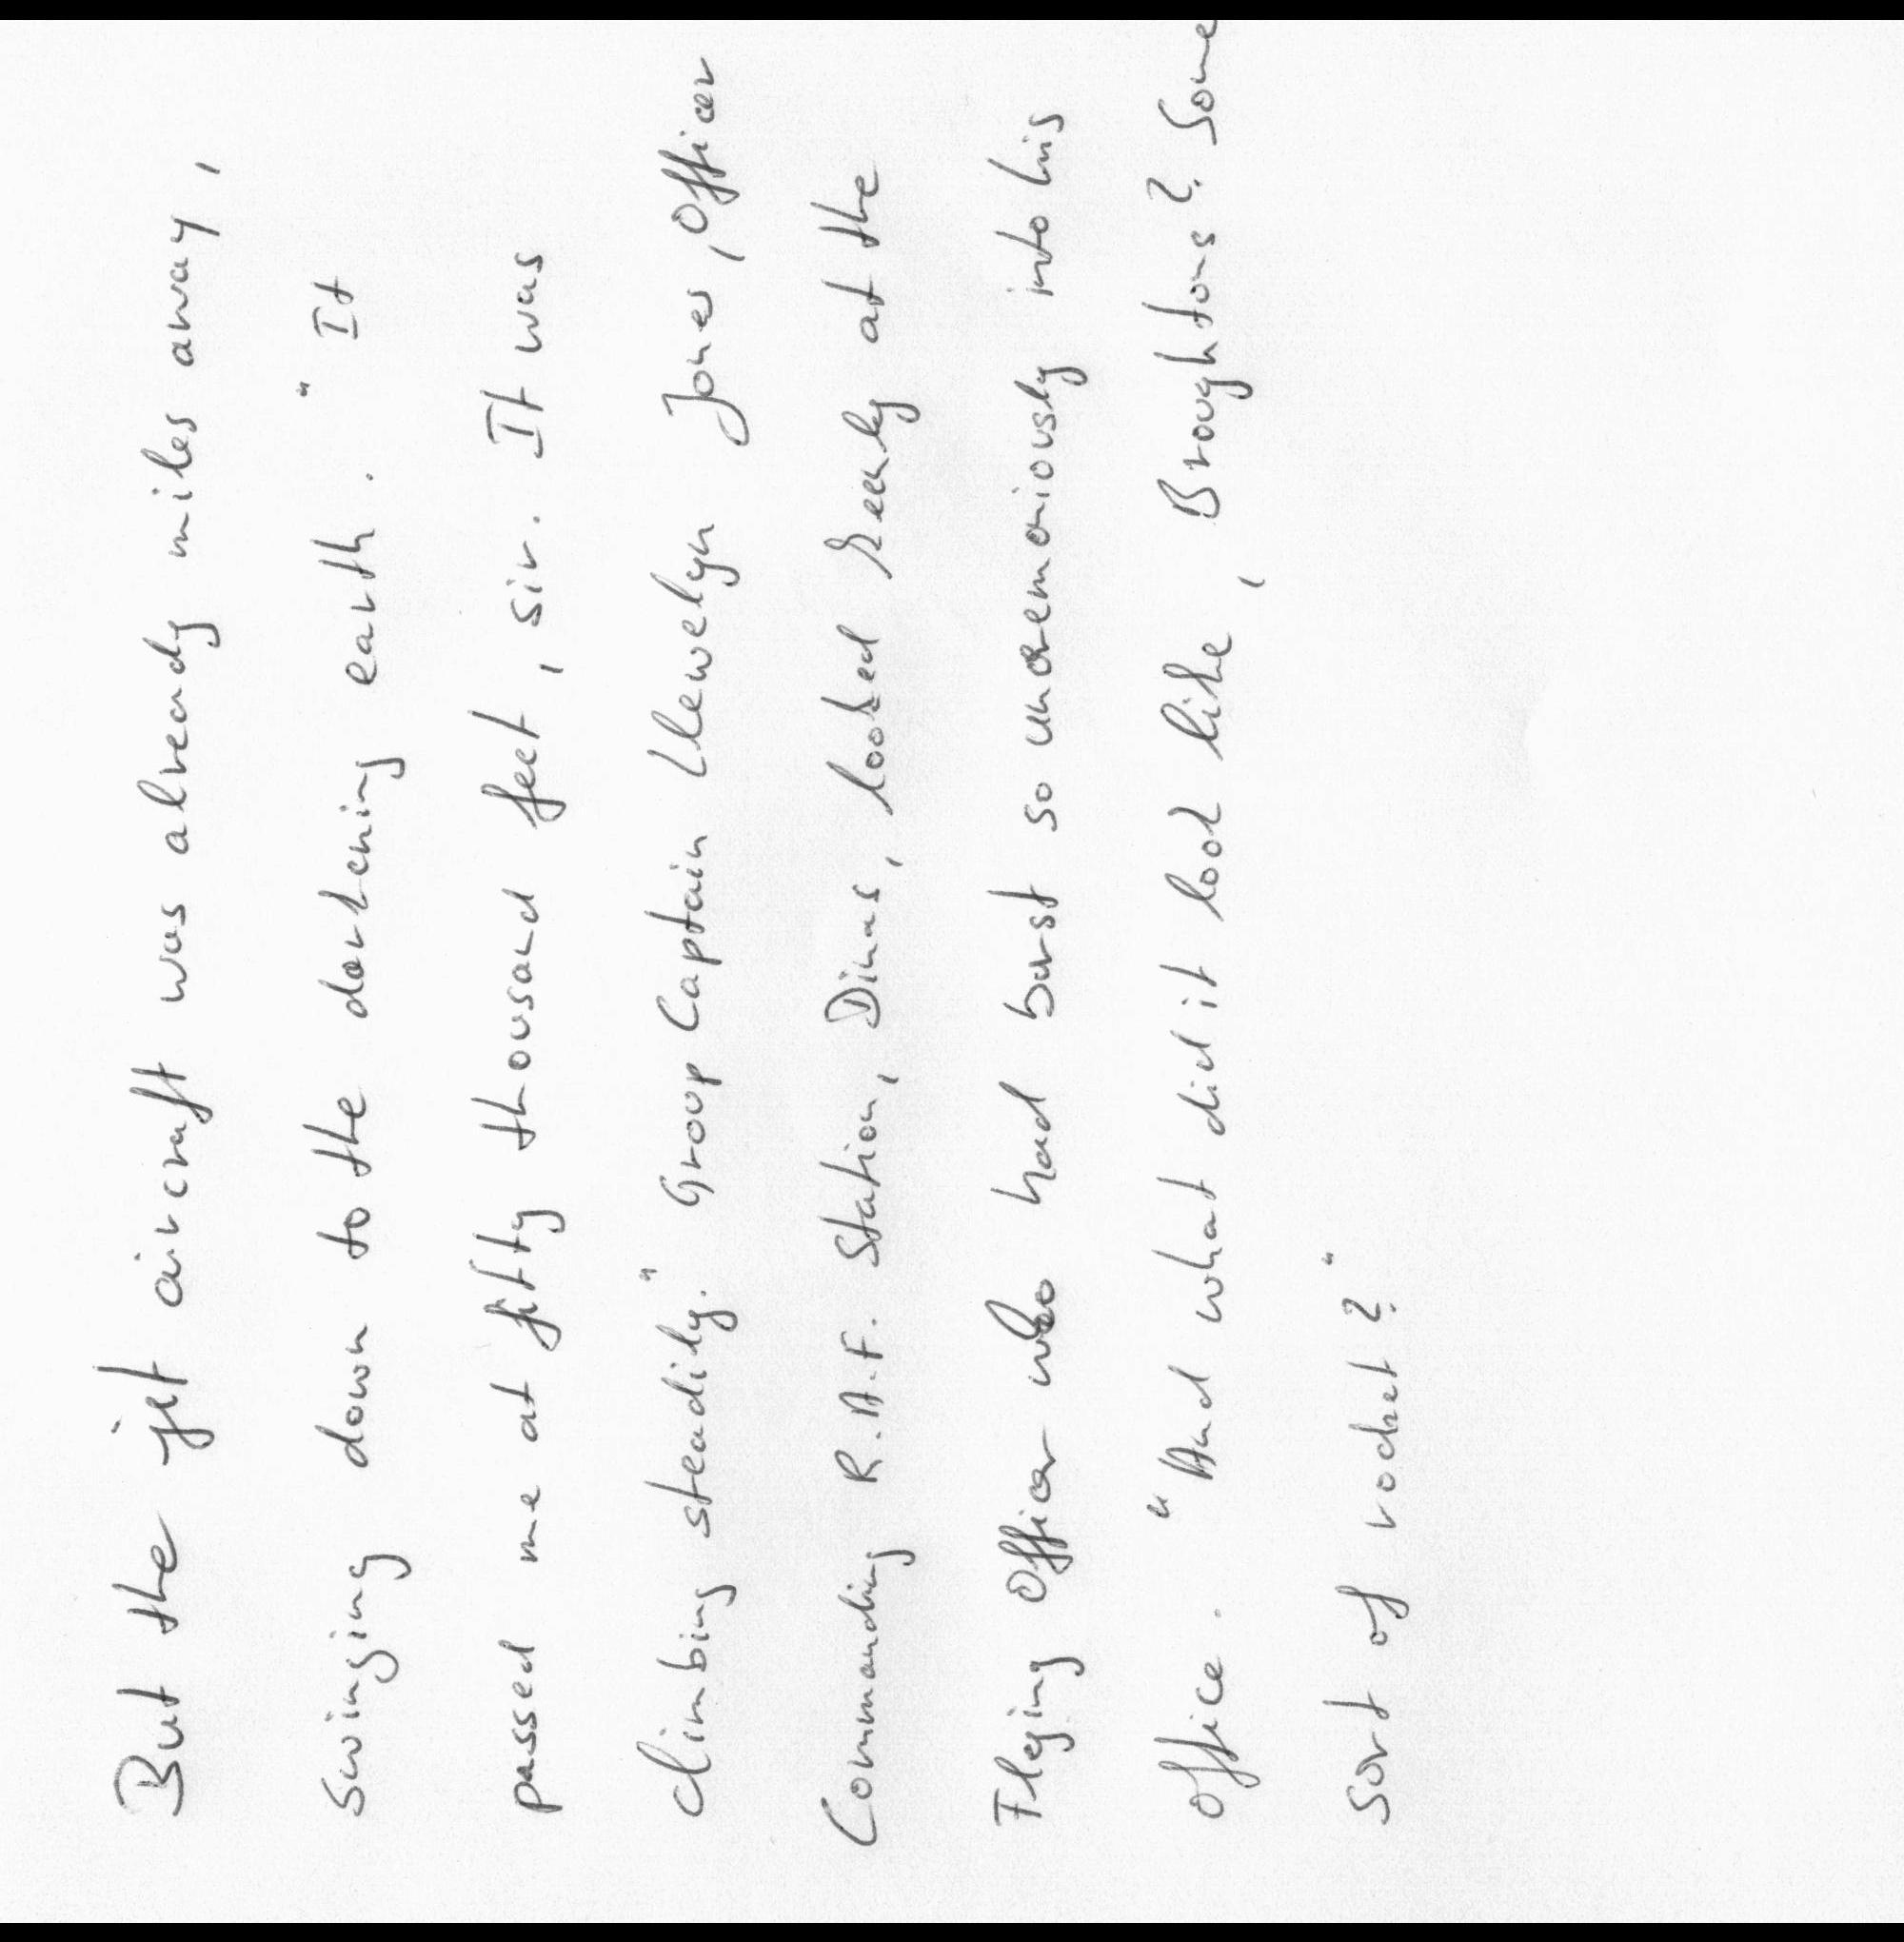 But the jet aircraft was already miles away,
swinging down to the darkening earth. " It
passed me at fifty thousand feet, sir. It was
climbing steadily." Group Captain Llewelyn Jones, Officer
Commanding R.A.F. Station, Dinas, looked keenly at the
Flying Officer who had burst so unceremoniously into his
office. "And what did it look like, Broughtons? Some
sort of rocket?"